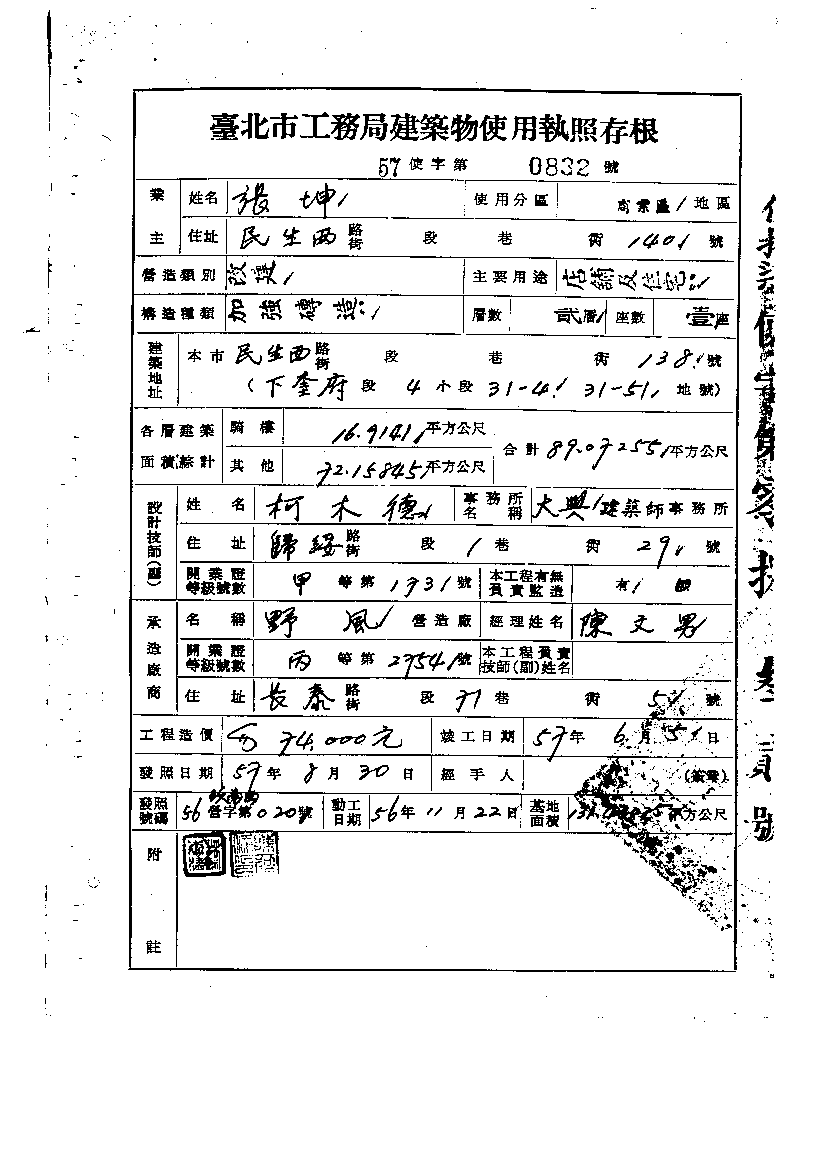 臺北市工務局建築物使用執照存根
57 使字第 0832 號
業主 姓名 張坤 使用分區 商業區 地區
住址 民生西 路街 段 巷 街 140 號
營造類別 改建 主要用途 店鋪及住宅
構造種類 加強磚造 層數 貳層 座數 壹座
建築地址 本市 民生西 路街 段 巷 街 138 號
(下奎府段 4 小段 31-4 31-51 地號)
各層建築面積綜計 騎樓 16.9141 平方公尺 合計 89.07255 平方公尺
其他 72.15845 平方公尺
設計技師(副) 姓名 柯木德 事務所名稱 大興建築師事務所
住址 歸綏 路街 段 1 巷 街 29 號
開業證等級號數 甲 等第 1731 號 本工程有無負責監造 有
承造廠商 名稱 野風 營造廠 經理姓名 陳文男
開業證等級號數 丙 等第 2754 號 本工程負責技師(副)姓名
住址 長泰 路街 段 71 巷 街 5 號
工程造價 74,000元 竣工日期 57年 6月 5日
發照日期 57年 8月 30日 經手人 (簽章)
發照號碼 56 營字第 020 號 動工日期 56年 11月 22日 基地面積 平方公尺
附註